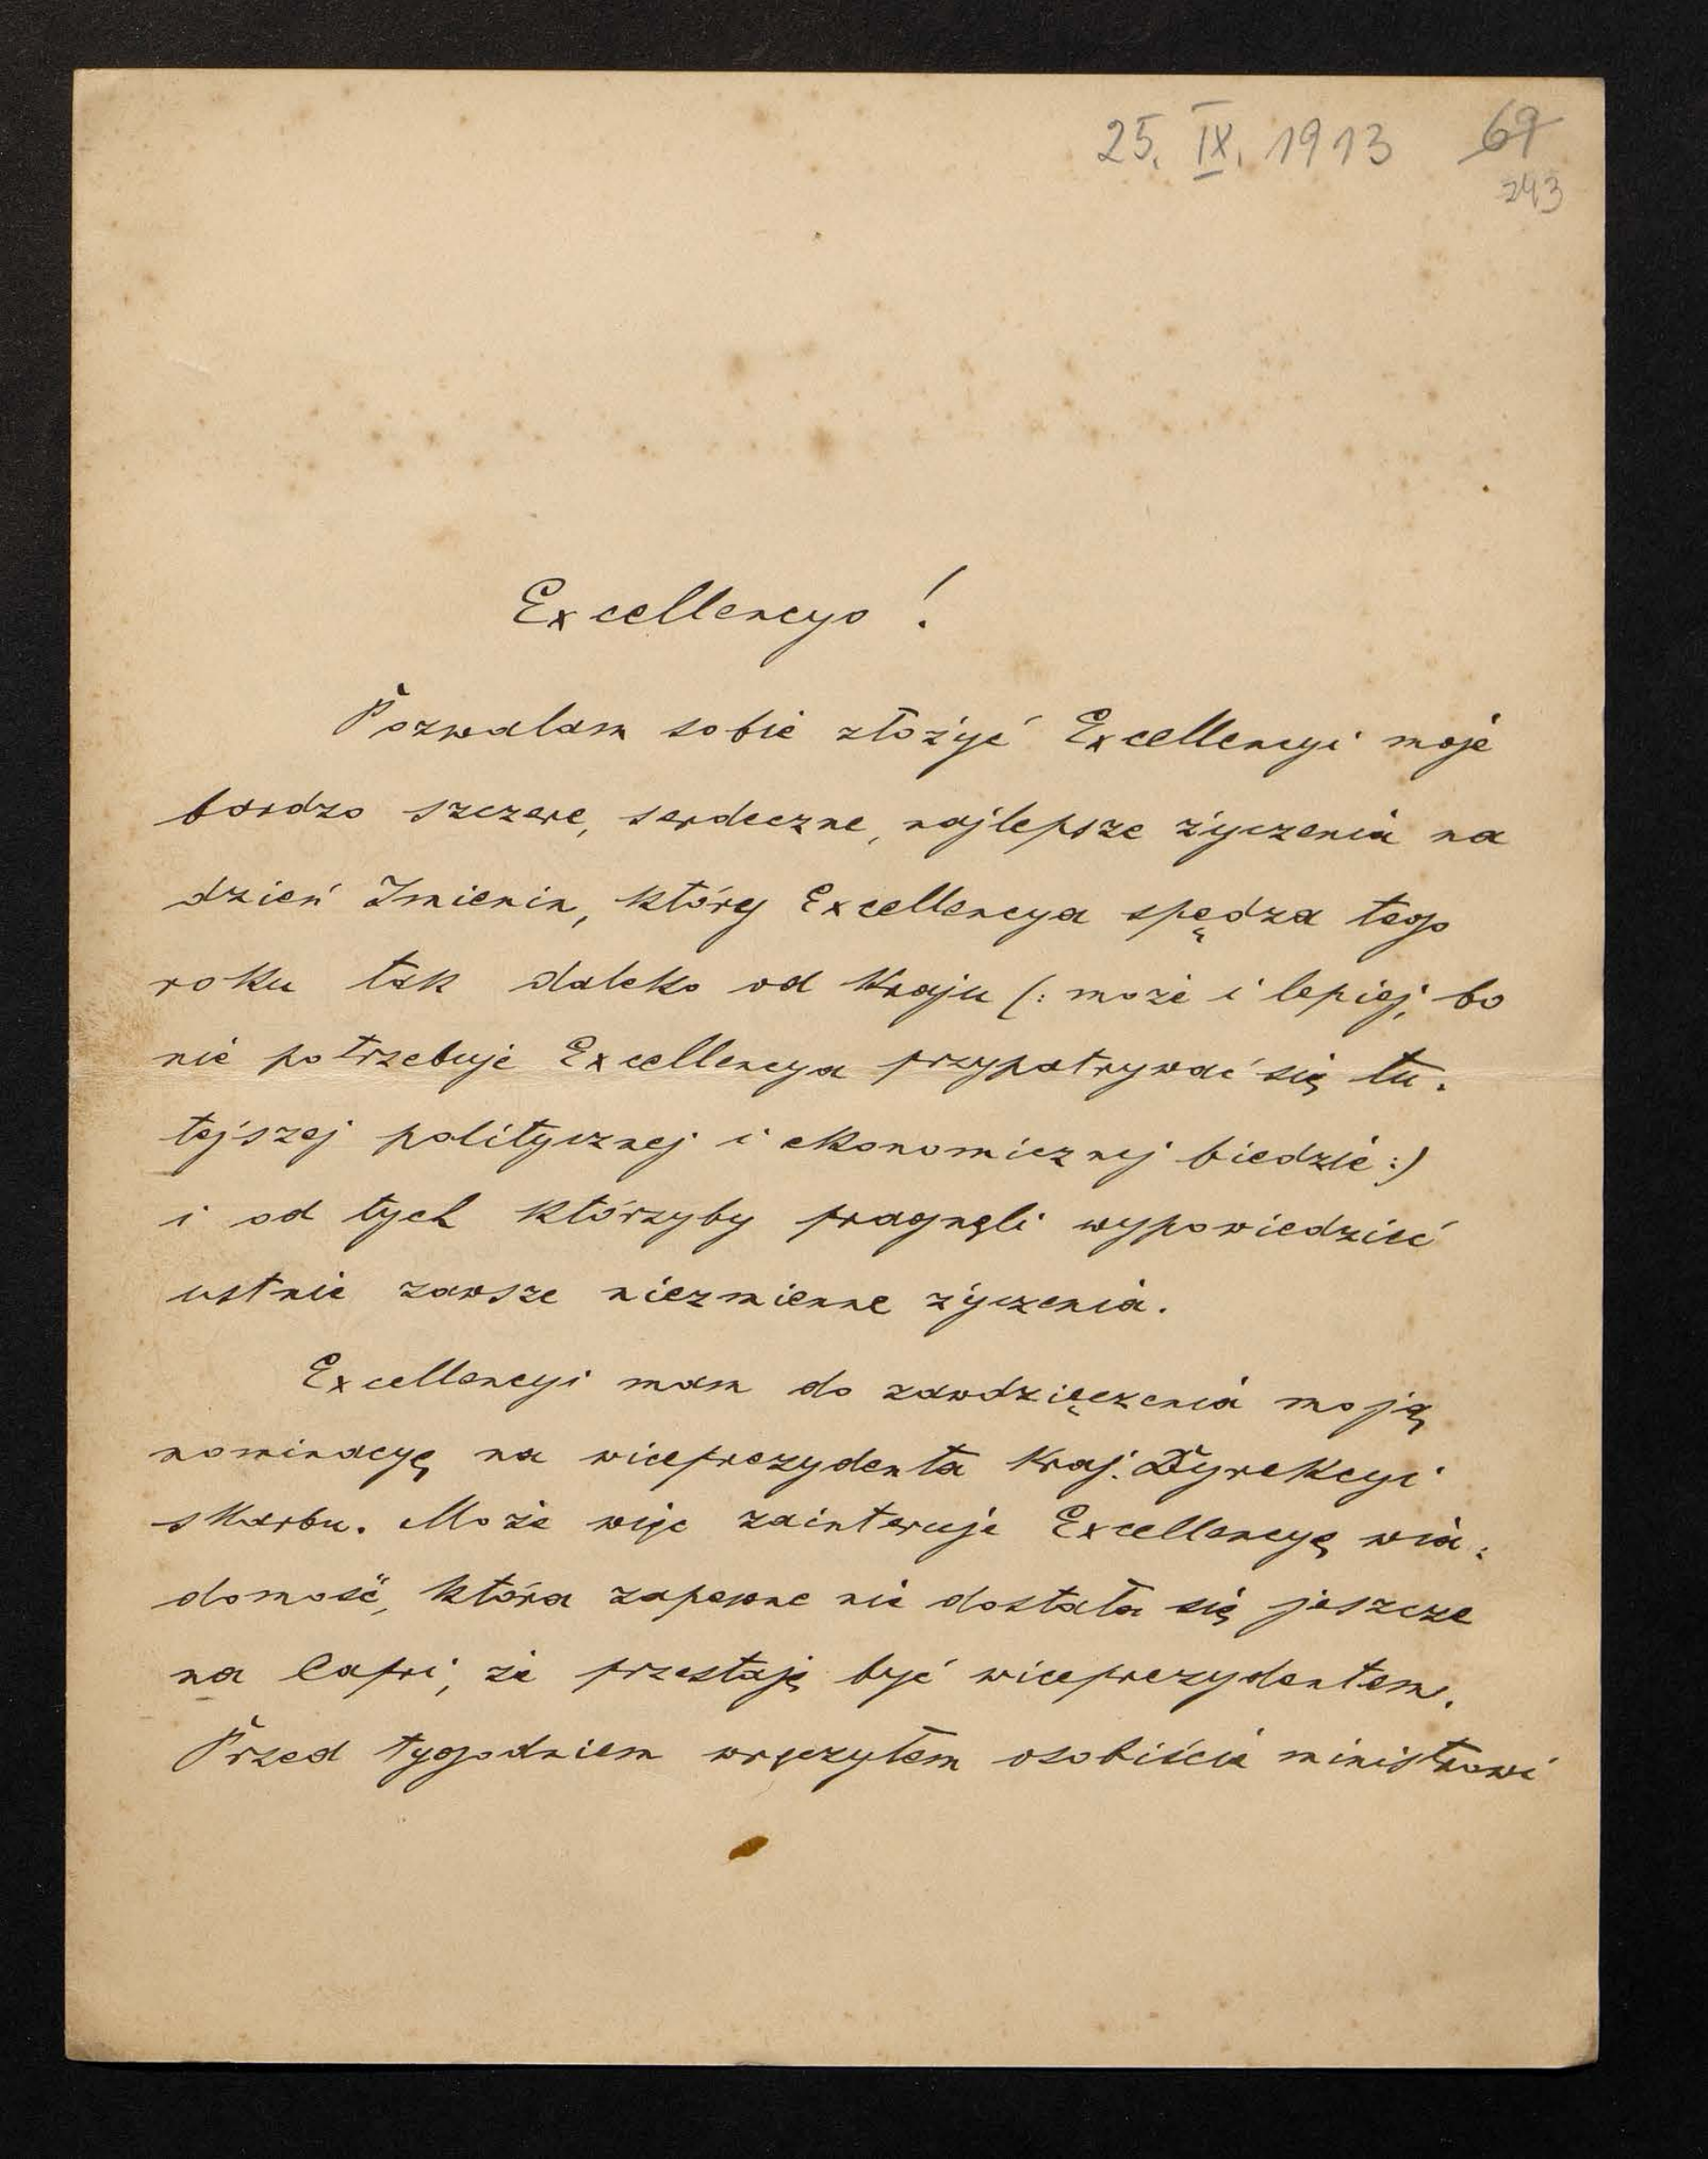 25. IX. 1913 69
243
Excellencyo !
Pozwalam sobie złożyć Excellencyi moje
bardzo szczere, serdeczne, najlepsze życzenia na
dzień Imienin, który Excellencya spędza tego
roku tak daleko od Kraju (: może i lepiej, bo
nie potrzebuje Excellencya przypatrywać się tu-
tejszej politycznej i ekonomicznej biedzie :)
i od tych którzyby pragnęli wypowiedzieć
ustnie zawsze niezmienne życzenia.
Excellencyi mam do zawdzięczenia moją
nominacyę na wiceprezydenta Kraj. Dyrekcyi
skarbu. Może więc zainteruje Excellencyę wia-
domość, która zapewne nie dostała się jeszcze
na Capri, że przestaję być wiceprezydentem.
Przed tygodniem wręczyłem osobiście ministrowi